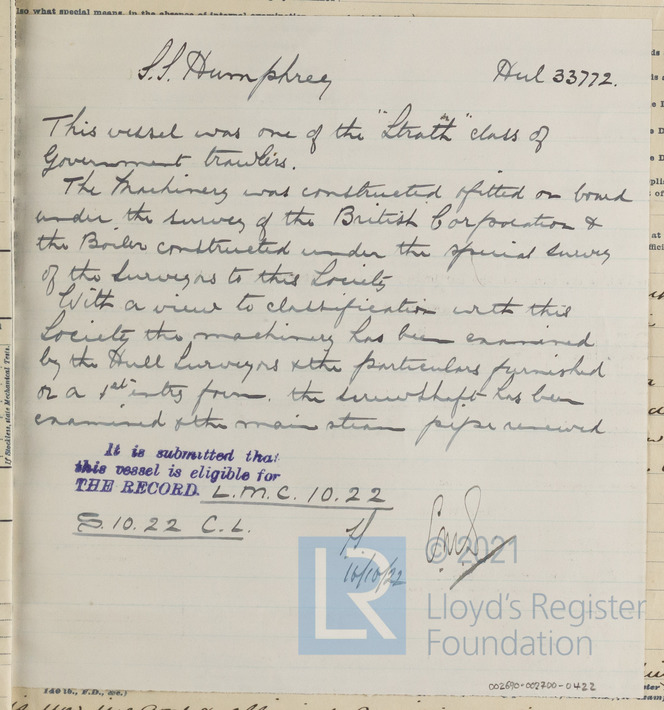 lso what special means, in the absence of internal examination
S.S. Humphrey Hul 33772.
This vessel was one of the "Strath" class of
Government trawlers.
The Machinery was constructed & fitted on board
under the survey of the British Corporation &
the Boiler constructed under the special survey
of the Surveyors to this Society
With a view to classification with this
Society the machinery has been examined
by the Hull Surveyors & the particulars furnished
on a 1st entry form. the screwshaft has been
examined & the main steam pipe renewed
It is submitted that
this vessel is eligible for
THE RECORD. L.M.C. 10.22
S. 10.22 C.L.
16/10/22
© 2021
LR
Lloyd's Register
Foundation
002690-002700-0422
If Stockless, state Mechanical Tests.
140 lb., F.D., &c.)